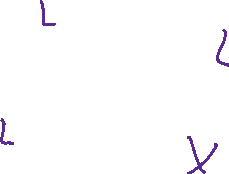 L
L
L
X